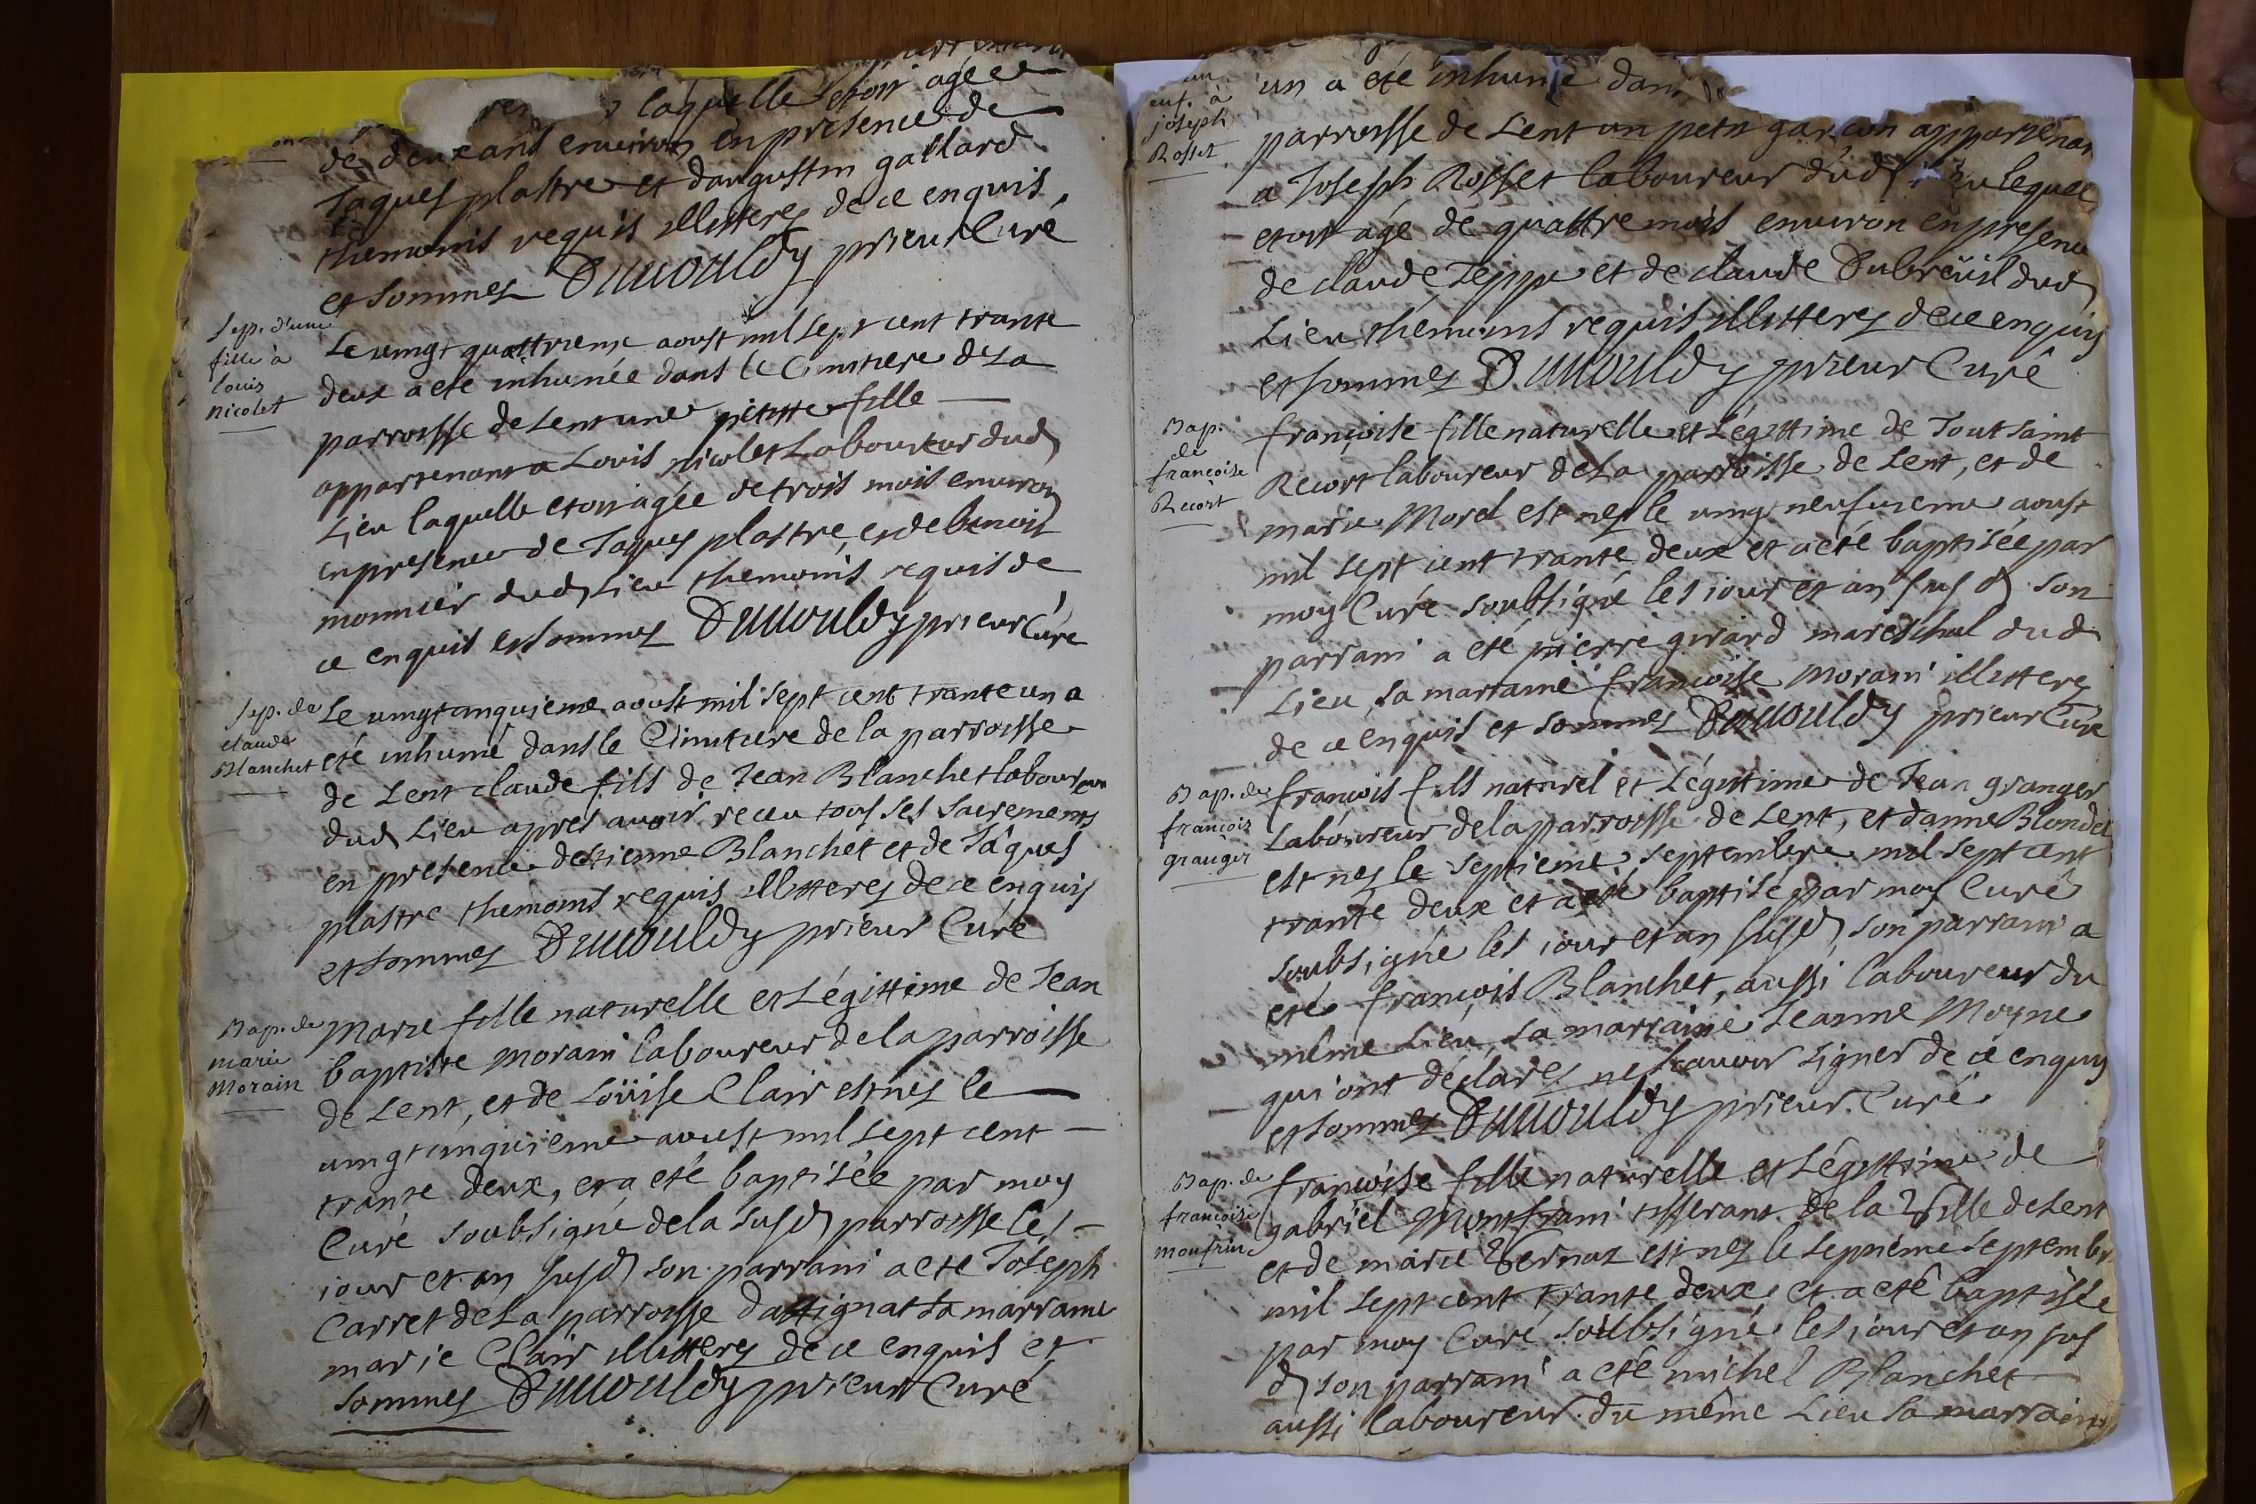 laquelle etoit agée
de deux ans environ en presence de
Jaques plastre et daugustin gallard
themoins requis illitteres de ce enquis
et sommes Dumouldy prieur Curé
Sep. d'une
fille à
louis
nicolet
Le vingt quattrieme aoust mil sept cent trante
deux a eté inhumée dans le Cimitiere de La
parroisse de Lent une petitte fille
appartenant a Louis nicolet Laboureur dud
Lieu laquelle etoit agée de trois mois environ
en presence de Jaques plastre, et de benoit
monnier dud Lieu themoins requis de
ce enquis et sommes Dumouldy prieur Curé
Sep. de
claude
Blanchet
Le vingt cinquieme aoust mil sept cent trante un a
eté inhumé dans le Cimitiere de la parroisse
de Lent claude fils de Jean Blanchet laboureur
dud Lieu apres avoir receu tous ses sacrements
en presence detienne Blanchet et de Jâques
plastre themoins requis illitteres de ce enquis
et sommes Dumouldy prieur Curé
Bap. de
marie
Morain
Marie fille naturelle et Légittime de Jean
baptiste morain laboureur de la parroisse
de Lent, et de Loüise Clair est nes le
vingt cinquieme aoust mil sept cent
trante deux, et a eté baptisée par moy
Curé soubsigné de la susd parroisse les
iour et an susd son parrain a eté Joseph
Carret de La parroisse dattignat sa marraine
marie Clair illitteres de ce enquis et
sommes Dumouldy prieur Curé
enf. à
joseph
Rosset
un a eté inhumé dans
parroisse de Lent un petit garcon appartenan
a Joseph Rosset laboureur dud lequel
etoit agé de quattre mois environ en presence
de claude Teppe et de claude Dubreüil dud
Lieu themoins requis illitteres de ce enquis
et sommes Dumouldy prieur Curé
Bap.
de
francoise
Recort
françoise fille naturelle et Légittime de Toutsaint
Recort laboureur de La parroisse de Lent, et de
marie Morel est nes le vingt neufvieme aoust
mil sept cent trante deux et a eté baptisée par
moy Curé soubsigné les iour et an sus d son
parrain a eté pierre girard mareschal dud
Lieu, sa marraine françoise morain illitteres
de ce enquis et sommes Dumouldy prieur Curé
Bap. de
francois
granger
françois fils naturel et Légittime de Jean granger
Laboureur de la parroisse de Lent, et danne Blondel
est nes le septieme septembre mil sept cent
trante deux et a eté baptisé par moy Curé
soubsigné les iour et an susd, son parrain a
eté françois Blanchet, aussi laboureur du
même Lieu, sa marraine Jeanne Moyne
qui ont déclarés ne scavoir signer de ce enquis
et sommes Dumouldy prieur Curé
Bap. de
francoise
monfrin
françoise fille naturelle et Légittime de
gabriel Montfrain tisserant de la Ville de Lent
et de marie Vernaz est nes le septieme septembr
mil sept cent trante deux et a eté baptisée
par moy Curé soubsigné les iour et an sus
d son parrain a eté michel Blanchet
aussi laboureur du même Lieu sa marraine